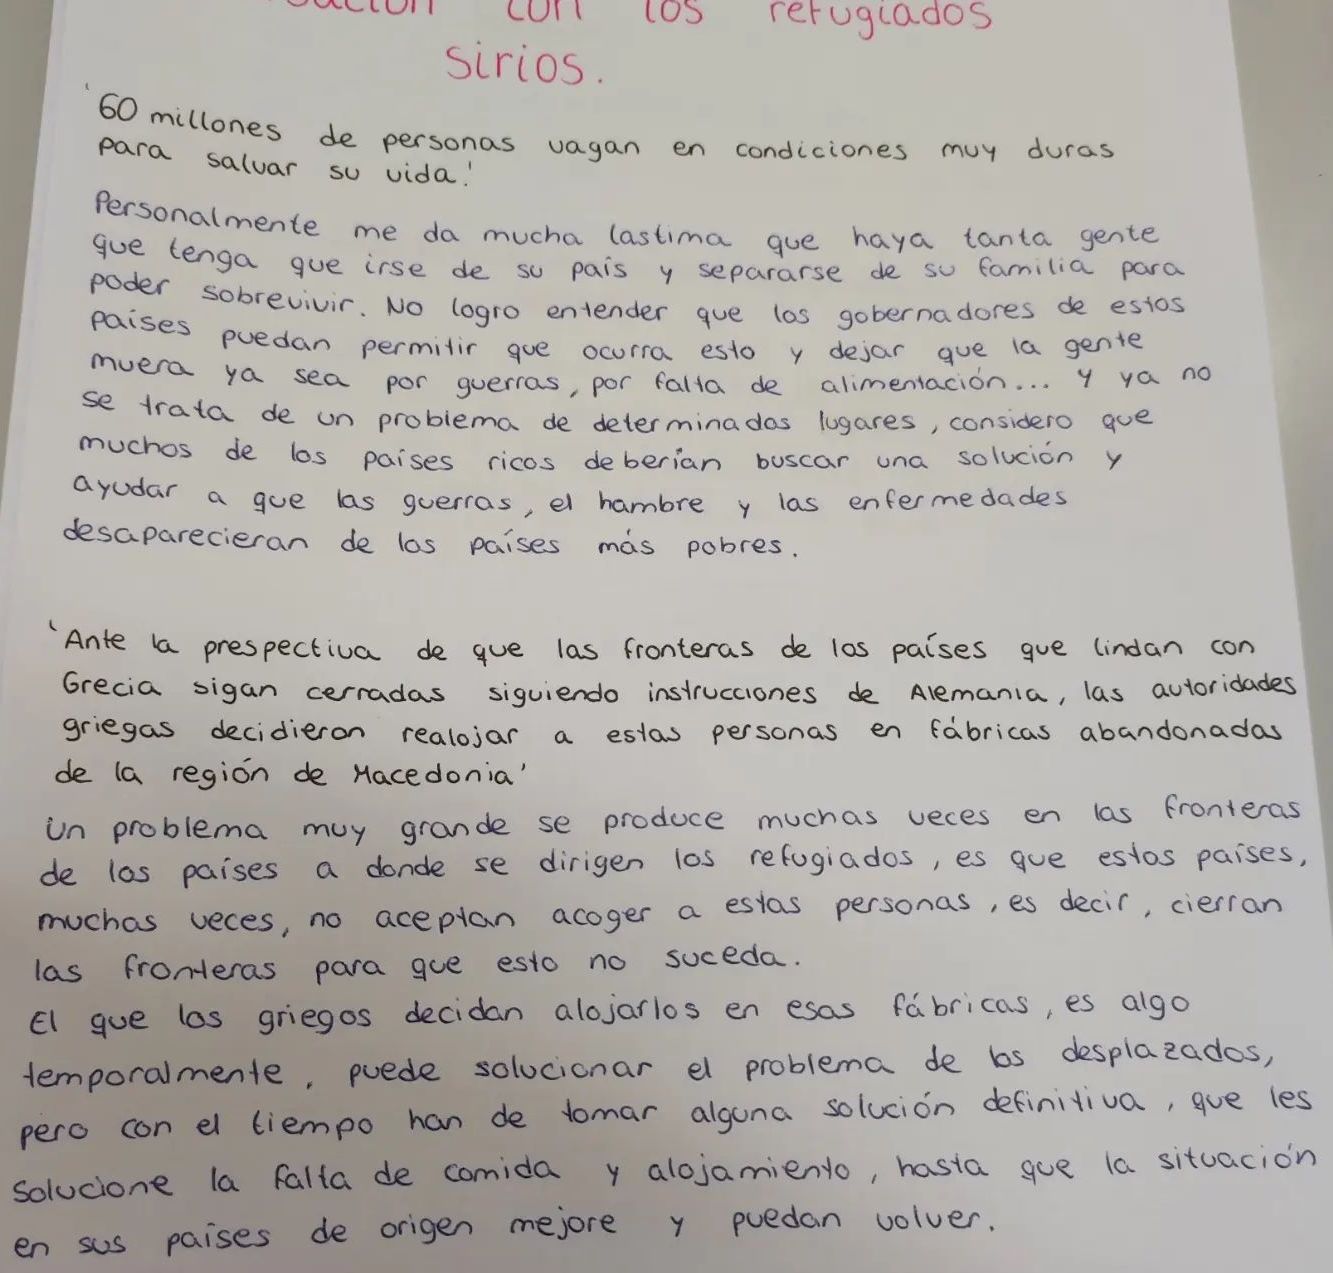 con los refugiados
sirios.
'60 millones de personas vagan en condiciones muy duras
para salvar su vida.'
Personalmente me da mucha lastima que haya tanta gente
que tenga que irse de su país y separarse de su familia para
poder sobrevivir. No logro entender que los gobernadores de estos
países puedan permitir que ocurra esto y dejar que la gente
muera ya sea por guerras, por falta de alimentación... y ya no
se trata de un problema de determinados lugares, considero que
muchos de los países ricos deberían buscar una solución y
ayudar a que las guerras, el hambre y las enfermedades
desaparecieran de los países más pobres.
'Ante la prespectiva de que las fronteras de los países que lindan con
Grecia sigan cerradas siguiendo instrucciones de Alemania, las autoridades
griegas decidieron realojar a estas personas en fábricas abandonadas
de la región de Macedonia'
Un problema muy grande se produce muchas veces en las fronteras
de los países a donde se dirigen los refugiados, es que estos países,
muchas veces, no aceptan acoger a estas personas, es decir, cierran
las fronteras para que esto no suceda.
El que los griegos decidan alojarlos en esas fábricas, es algo
temporalmente, puede solucionar el problema de los desplazados,
pero con el tiempo han de tomar alguna solución definitiva, que les
solucione la falta de comida y alojamiento, hasta que la situación
en sus países de origen mejore y puedan volver.